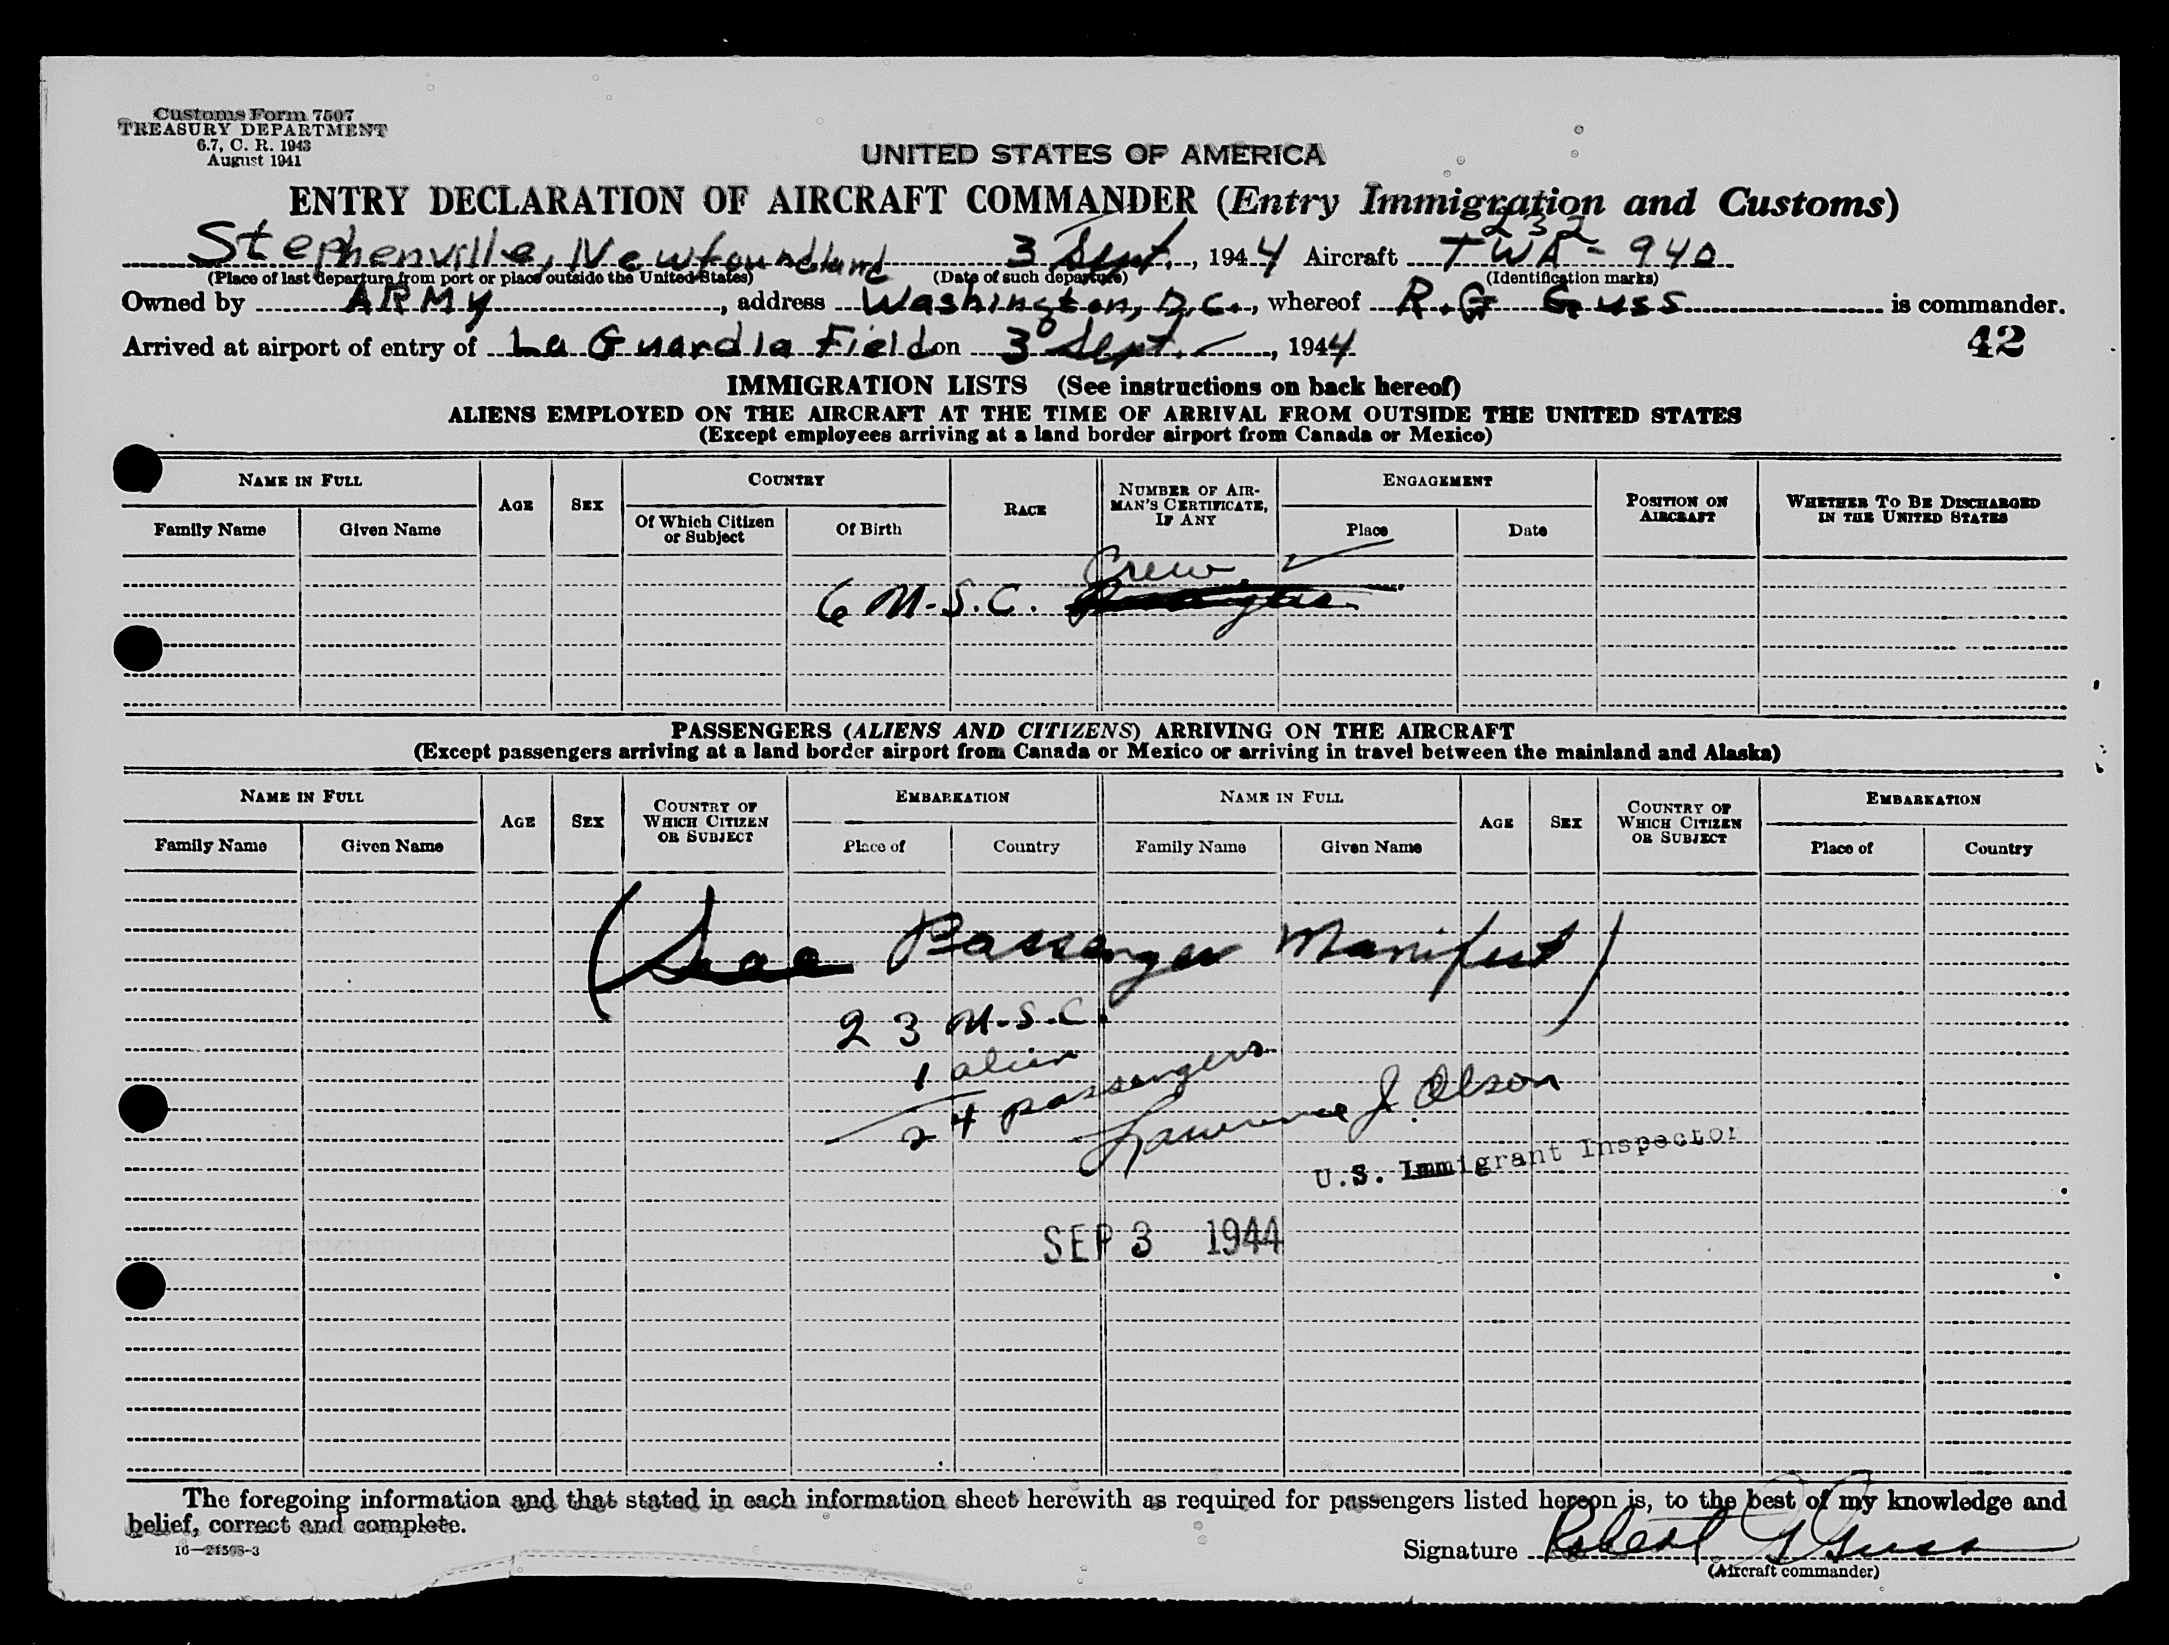 Customs Form 7507
TREASURY DEPARTMENT
6.7, C. R. 1943
August 1941
UNITED STATES OF AMERICA
ENTRY DECLARATION OF AIRCRAFT COMMANDER (Entry Immigration and Customs)
232
Stephenville, Newfoundland 3 Sept., 1944 Aircraft TWA - 940
(Place of last departure from port or place outside the United States) (Date of such departure) (Identification marks)
Owned by ARMY, address Washington, D.C., whereof R.G Guss is commander.
Arrived at airport of entry of La Guardia Field on 3 Sept., 1944
42
IMMIGRATION LISTS (See instructions on back hereof)
ALIENS EMPLOYED ON THE AIRCRAFT AT THE TIME OF ARRIVAL FROM OUTSIDE THE UNITED STATES
(Except employees arriving at a land border airport from Canada or Mexico)
NAME IN FULL AGE SEX COUNTRY RACE NUMBER OF AIR-MAN'S CERTIFICATE, IF ANY ENGAGEMENT POSITION ON AIRCRAFT WHETHER TO BE DISCHARGED IN THE UNITED STATES
Family Name Given Name Of Which Citizen or Subject Of Birth Place Date
Crew
6 U.S.C.
PASSENGERS (ALIENS AND CITIZENS) ARRIVING ON THE AIRCRAFT
(Except passengers arriving at a land border airport from Canada or Mexico or arriving in travel between the mainland and Alaska)
NAME IN FULL AGE SEX COUNTRY OF WHICH CITIZEN OR SUBJECT EMBARKATION NAME IN FULL AGE SEX COUNTRY OF WHICH CITIZEN OR SUBJECT EMBARKATION
Family Name Given Name Place of Country Family Name Given Name Place of Country
(See Passenger Manifest)
23 U.S.C.
1 alien
24 passengers
Lawrence J. Olson
U.S. Immigrant Inspector
SEP 3 1944
The foregoing information and that stated in each information sheet herewith as required for passengers listed hereon is, to the best of my knowledge and
belief, correct and complete.
16—21598-3
Signature Robert G Guss
(Aircraft commander)